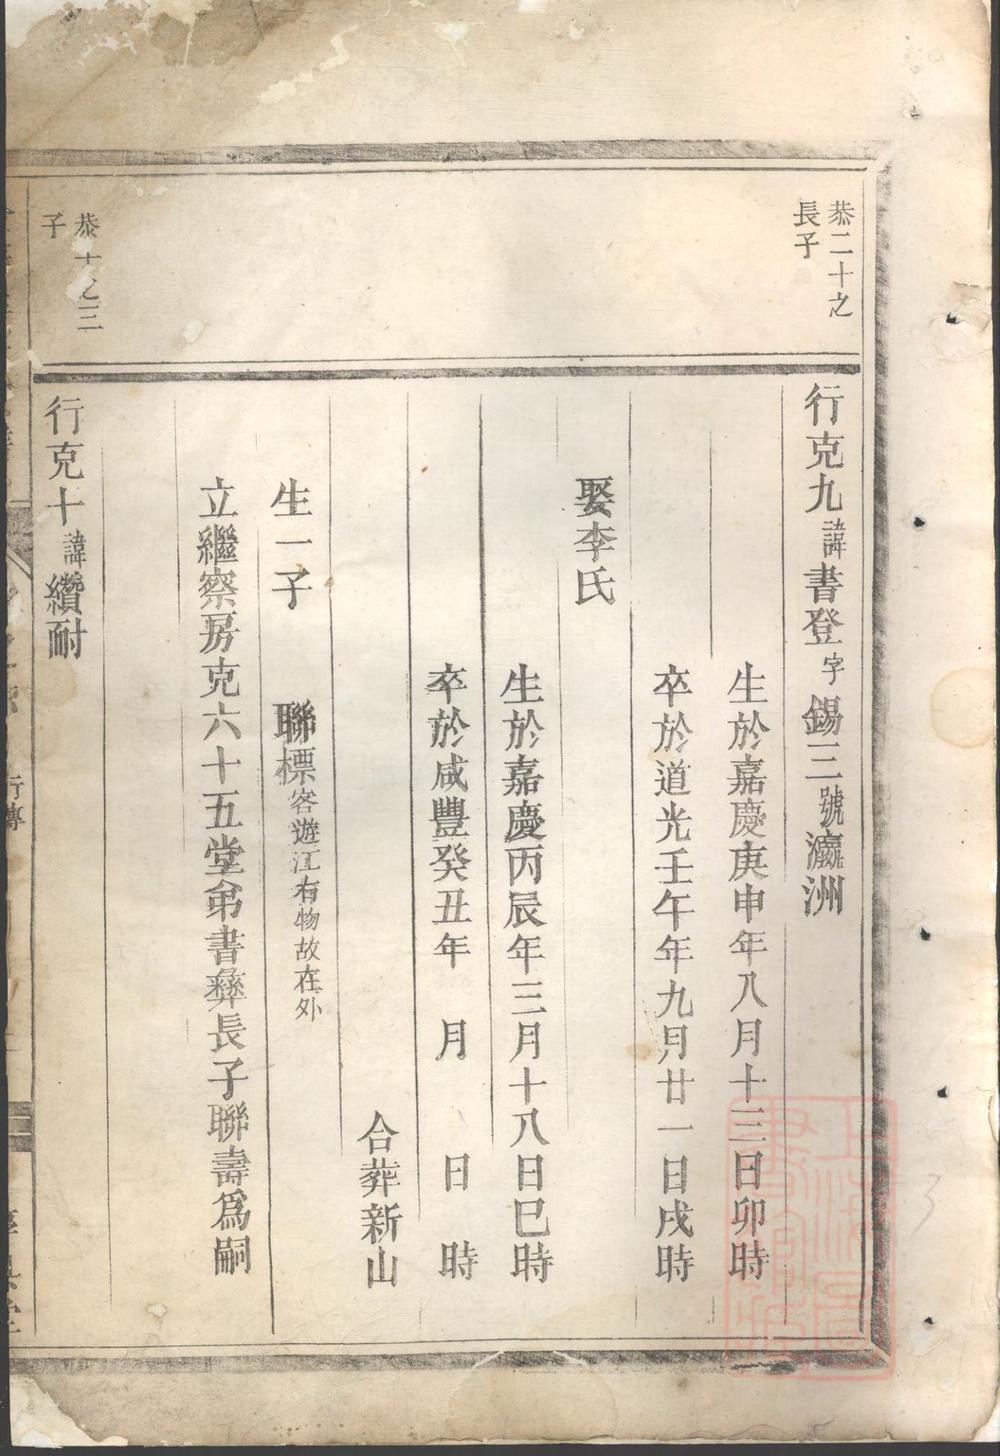 恭二十之
長子
行克九諱書登字錫三號瀛洲
生於嘉慶庚申年八月十三日卯時
卒於道光壬午年九月廿一日戌時
娶李氏
生於嘉慶丙辰年三月十八日巳時
卒於咸豐癸丑年 月 日 時
合葬新山
生一子 聯標客遊江右物故在外
立繼察房克六十五堂弟書彝長子聯壽爲嗣
恭十之三
子
行克十諱纘耐
行傳